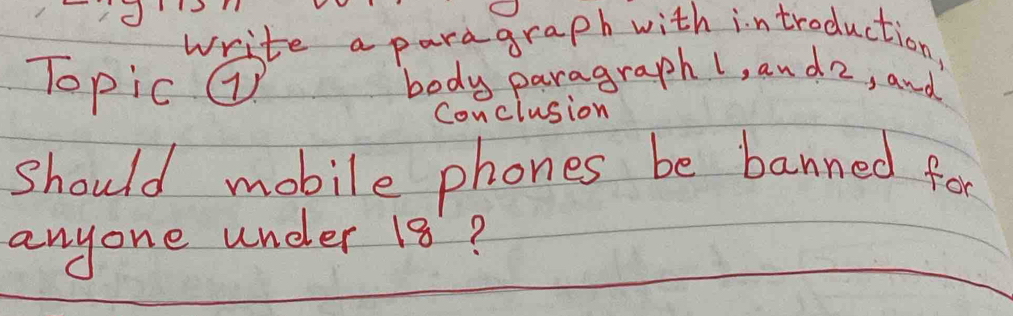 Write a paragraph with introduction,
Topic ① body paragraph 1, and 2, and
Conclusion
should mobile phones be banned for
anyone under 18 ?